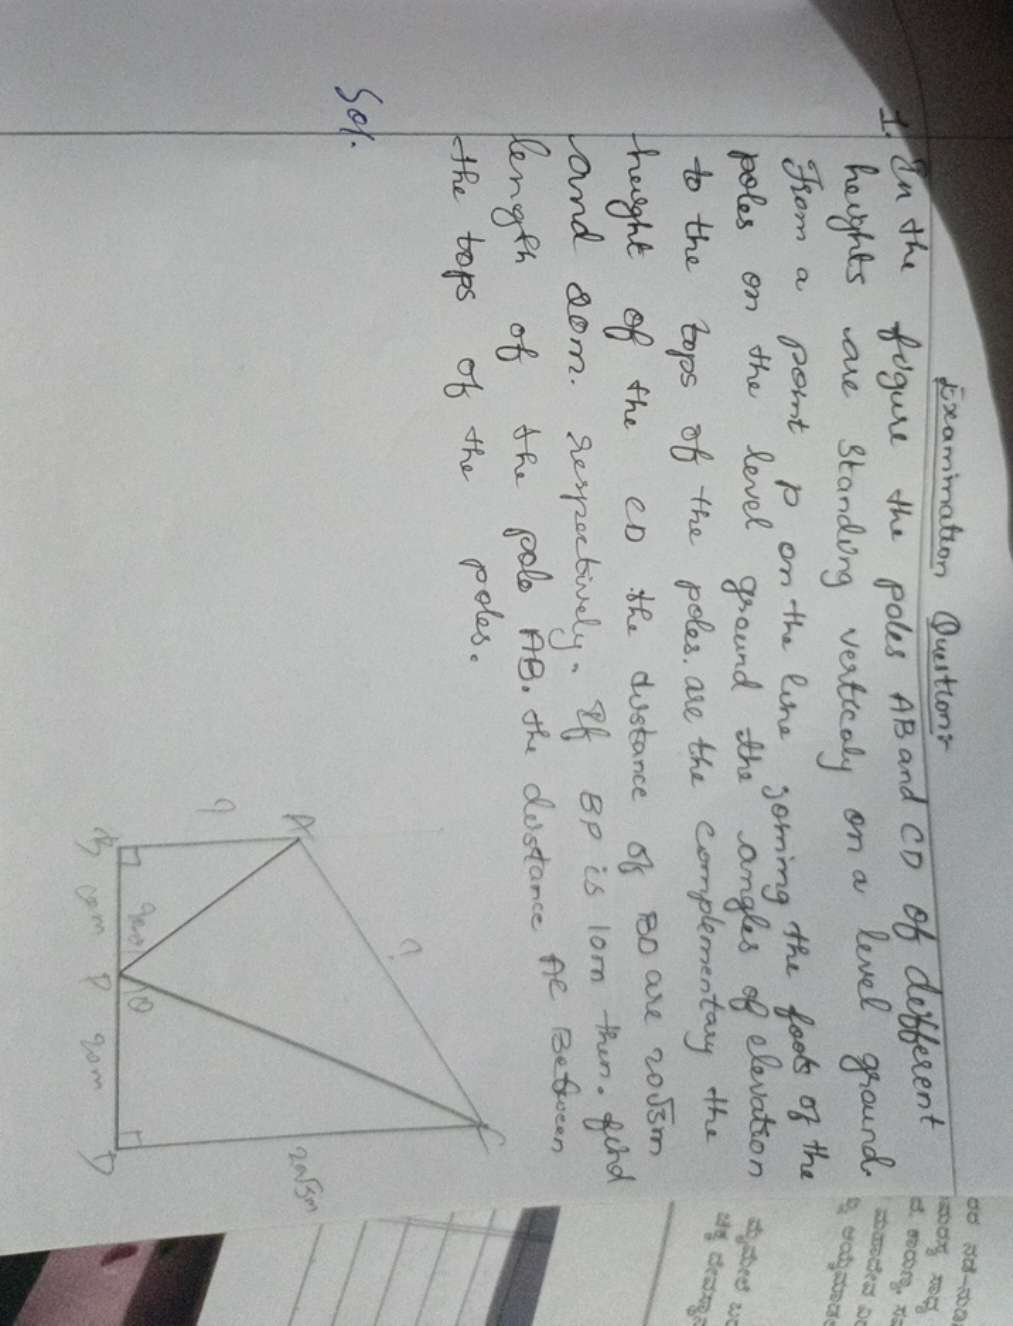 Examination Question:-
1. In the figure the poles AB and CD of different
heights are standing verticaly on a level ground.
From a point P on the line joining the foots of the
poles on the level ground the angles of elevation
to the tops of the poles. are the complementary the
height of the CD the distance of BD are 20√3m
and 20m. respectively. If BP is 10m then. find
length of the pole AB. the distance AC Between
the tops of the poles.
Sol.
A
?
?
C
20√3m
B
P
θ
20m
D